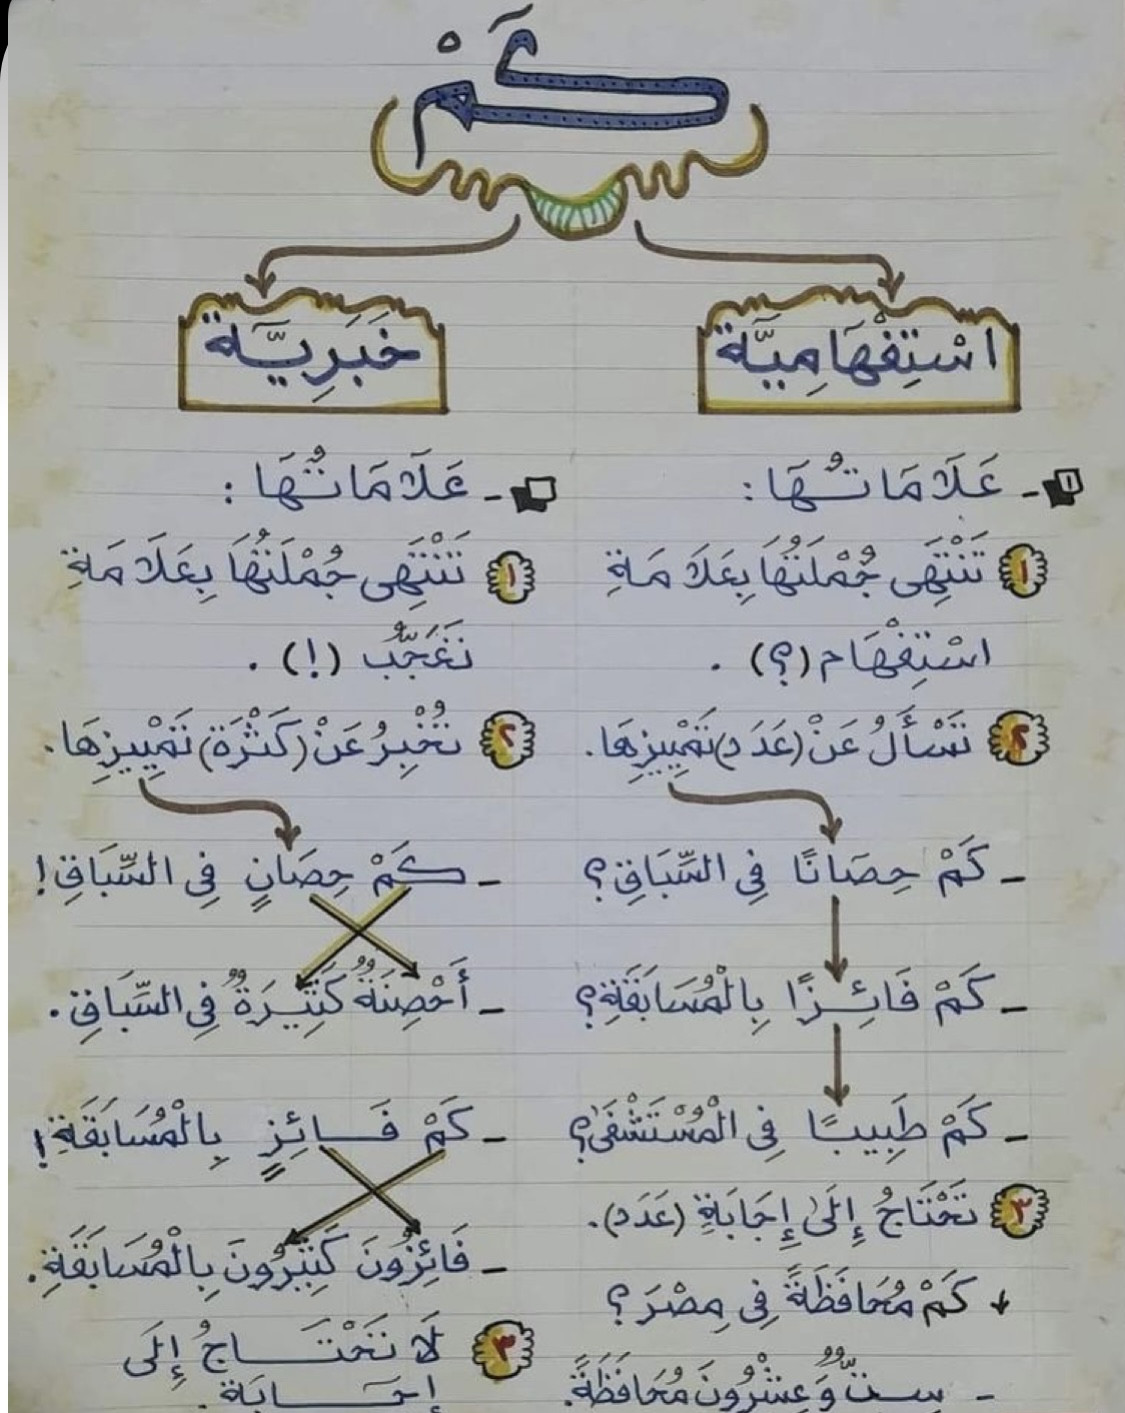 كَمْ
اسْتِفْهَامِيَّة
عَلَامَاتُهَا :
١ تَنْتَهِى جُمْلَتُهَا بِعَلَامَةِ
اسْتِفْهَام (؟) .
٢ تَسْأَلُ عَنْ (عَدَد) تَمْيِيزِهَا.
ـ كَمْ حِصَانًا فِى السِّبَاقِ؟
ـ كَمْ فَائِزًا بِالْمُسَابَقَةِ؟
ـ كَمْ طَبِيبًا فِى الْمُسْتَشْفَى؟
٣ تَحْتَاجُ إِلَى إِجَابَةِ (عَدَد).
كَمْ مُحَافَظَةً فِى مِصْرَ؟
ـ سِتٌّ وَعِشْرُونَ مُحَافَظَةً.
خَبَرِيَّة
ـ عَلَامَاتُهَا :
١ تَنْتَهِى جُمْلَتُهَا بِعَلَامَةِ
تَعَجُّب (!) .
٢ تُخْبِرُ عَنْ (كَثْرَة) تَمْيِيزِهَا.
ـ كَمْ حِصَانٍ فِى السِّبَاقِ!
ـ أَحْصِنَةٌ كَثِيرَةٌ فِى السِّبَاقِ.
ـ كَمْ فَائِزٍ بِالْمُسَابَقَةِ!
ـ فَائِزُونَ كَثِيرُونَ بِالْمُسَابَقَةِ.
٣ لَا تَحْتَاجُ إِلَى
إِجَابَة.